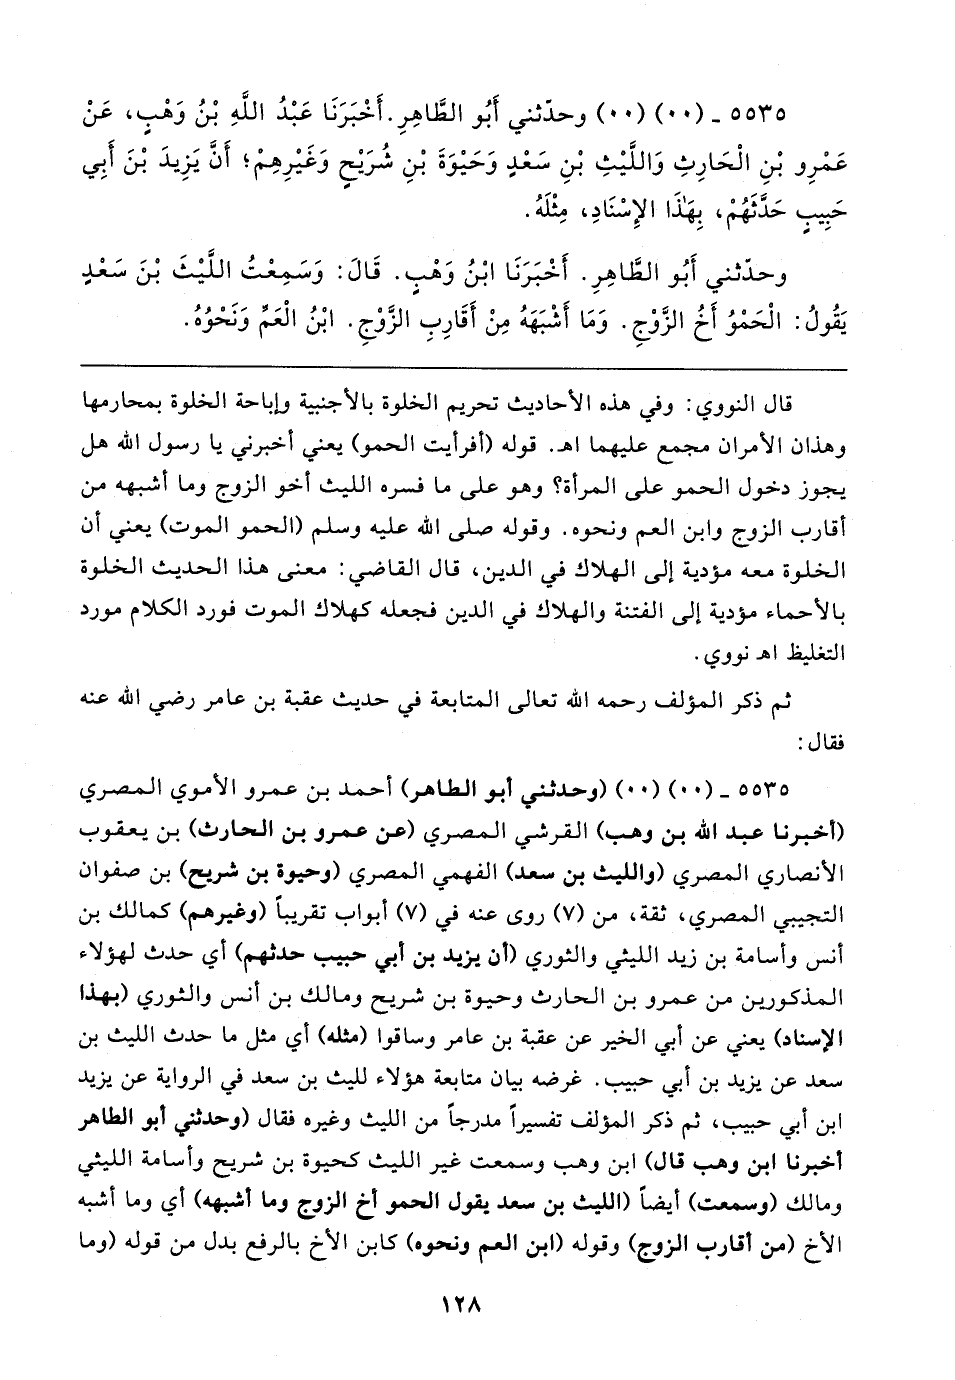 ٥٥٣٥ ـ (٠٠) (٠٠) وحدّثني أَبُو الطَّاهِرِ. أَخْبَرَنَا عَبْدُ اللَّهِ بْنُ وَهْبٍ، عَنْ
عَمْرِو بْنِ الْحَارِثِ وَاللَّيْثِ بْنِ سَعْدٍ وَحَيْوَةَ بْنِ شُرَيْحٍ وَغَيْرِهِمْ؛ أَنَّ يَزِيدَ بْنَ أَبِي
حَبِيبٍ حَدَّثَهُمْ، بِهٰذَا الإِسْنَادِ، مِثْلَهُ.
وحدّثني أَبُو الطَّاهِرِ. أَخْبَرَنَا ابْنُ وَهْبٍ. قَالَ: وَسَمِعْتُ اللَّيْثَ بْنَ سَعْدٍ
يَقُولُ: الْحَمْوُ أَخُ الزَّوْجِ. وَمَا أَشْبَهَهُ مِنْ أَقَارِبِ الزَّوْجِ. ابْنُ الْعَمِّ وَنَحْوُهُ.
قال النووي: وفي هذه الأحاديث تحريم الخلوة بالأجنبية وإباحة الخلوة بمحارمها
وهذان الأمران مجمع عليهما اهـ. قوله (أفرأيت الحمو) يعني أخبرني يا رسول الله هل
يجوز دخول الحمو على المرأة؟ وهو على ما فسره الليث أخو الزوج وما أشبهه من
أقارب الزوج وابن العم ونحوه. وقوله صلى الله عليه وسلم (الحمو الموت) يعني أن
الخلوة معه مؤدية إلى الهلاك في الدين، قال القاضي: معنى هذا الحديث الخلوة
بالأحماء مؤدية إلى الفتنة والهلاك في الدين فجعله كهلاك الموت فورد الكلام مورد
التغليظ اهـ نووي.
ثم ذكر المؤلف رحمه الله تعالى المتابعة في حديث عقبة بن عامر رضي الله عنه
فقال:
٥٥٣٥ ـ (٠٠) (٠٠) (وحدثني أبو الطاهر) أحمد بن عمرو الأموي المصري
(أخبرنا عبد الله بن وهب) القرشي المصري (عن عمرو بن الحارث) بن يعقوب
الأنصاري المصري (والليث بن سعد) الفهمي المصري (وحيوة بن شريح) بن صفوان
التجيبي المصري، ثقة، من (٧) روى عنه في (٧) أبواب تقريباً (وغيرهم) كمالك بن
أنس وأسامة بن زيد الليثي والثوري (أن يزيد بن أبي حبيب حدثهم) أي حدث لهؤلاء
المذكورين من عمرو بن الحارث وحيوة بن شريح ومالك بن أنس والثوري (بهذا
الإسناد) يعني عن أبي الخير عن عقبة بن عامر وساقوا (مثله) أي مثل ما حدث الليث بن
سعد عن يزيد بن أبي حبيب. غرضه بيان متابعة هؤلاء لليث بن سعد في الرواية عن يزيد
ابن أبي حبيب، ثم ذكر المؤلف تفسيراً مدرجاً من الليث وغيره فقال (وحدثني أبو الطاهر
أخبرنا ابن وهب قال) ابن وهب وسمعت غير الليث كحيوة بن شريح وأسامة الليثي
ومالك (وسمعت) أيضاً (الليث بن سعد يقول الحمو أخ الزوج وما أشبهه) أي وما أشبه
الأخ (من أقارب الزوج) وقوله (ابن العم ونحوه) كابن الأخ بالرفع بدل من قوله (وما
١٢٨